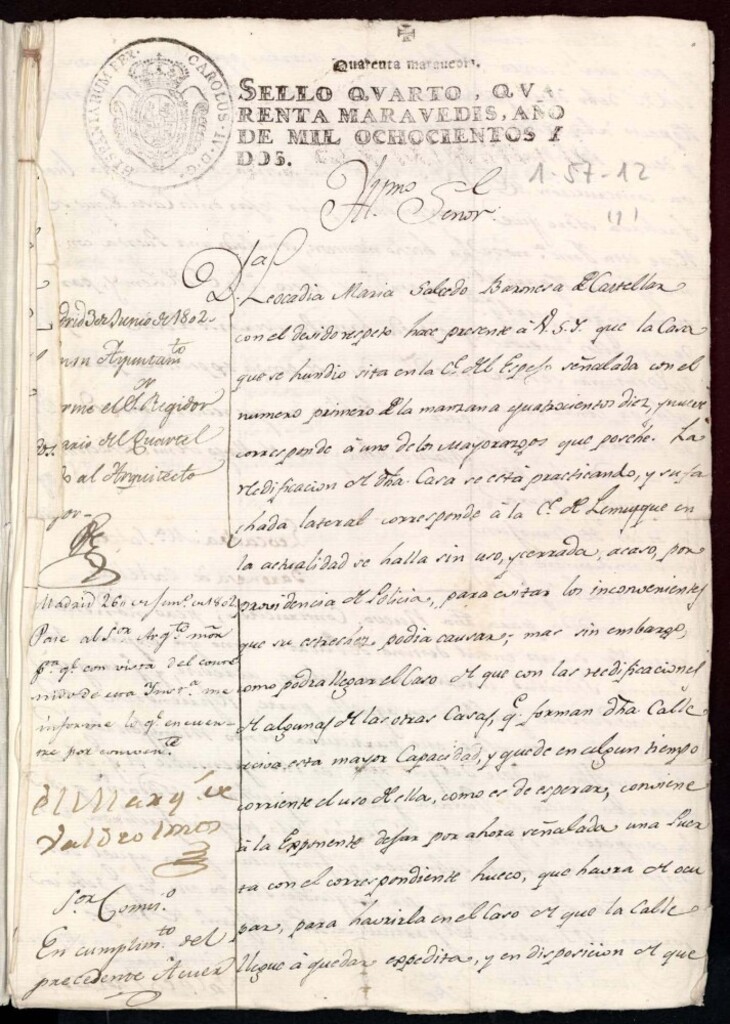 HISPANIARUM REX
CAROLUS IV D. G.
Quarenta maravedis.
SELLO QVARTO, QVA
RENTA MARAVEDIS, AÑO
DE MIL OCHOCIENTOS Y
DOS.
1-57-12
Yllmo Señor.
Dª Leocadia Maria Salcedo Baronesa de Castellar
con el devido respeto hace presente à V.S.Y. que la Casa
que se hundio sita en la Cᵉ del Espejo señalada con el
numero primero de la manzana quatrocientos diez, y nueve
corresponde à uno de los Mayorazgos que poséhe. La
redificacion de dha. Casa se està practicando, y su fa
chada lateral corresponde à la Cᵉ de en
la actualidad se halla sin uso, y cerrada, acaso, por
providencia de Policia, para evitar los inconvenientes
que su estrechez podia causar; mas sin embargo,
como podra llegar el Caso de que con las redificaciones
de algunas de las otras Casas, q.ᵉ forman dha Calle
esta mayor Capacidad, y quede en algun tiempo
corriente el uso de ella, como es de esperar, conviene
à la Exponente dejar por ahora señalada una Puer
ta con el correspondiente hueco, que havra de ocu
par, para havrirla en el Caso de que la Calle
llegue à quedar expedita, y en disposicion de que
drid 3 de Junio de 1802.
Ayuntamᵗᵒ
rme el Sʳ Regidor
ario del Quartel
al Arquitecto
yor-
Madrid 26 de Junᵒ de 1802
Pase al Sᵒʳ Arqᵗᵒ mᵒʳ
pᵃ qᵉ con vista del conte
nido de esta Instᵃ me
informe lo qᵉ encuen-
tre por convenᵗᵉ
el Marqˢ de
Valdeolmos
Sᵒʳ Comisᵒ
En cumplimᵗᵒ del
precedente Acuer